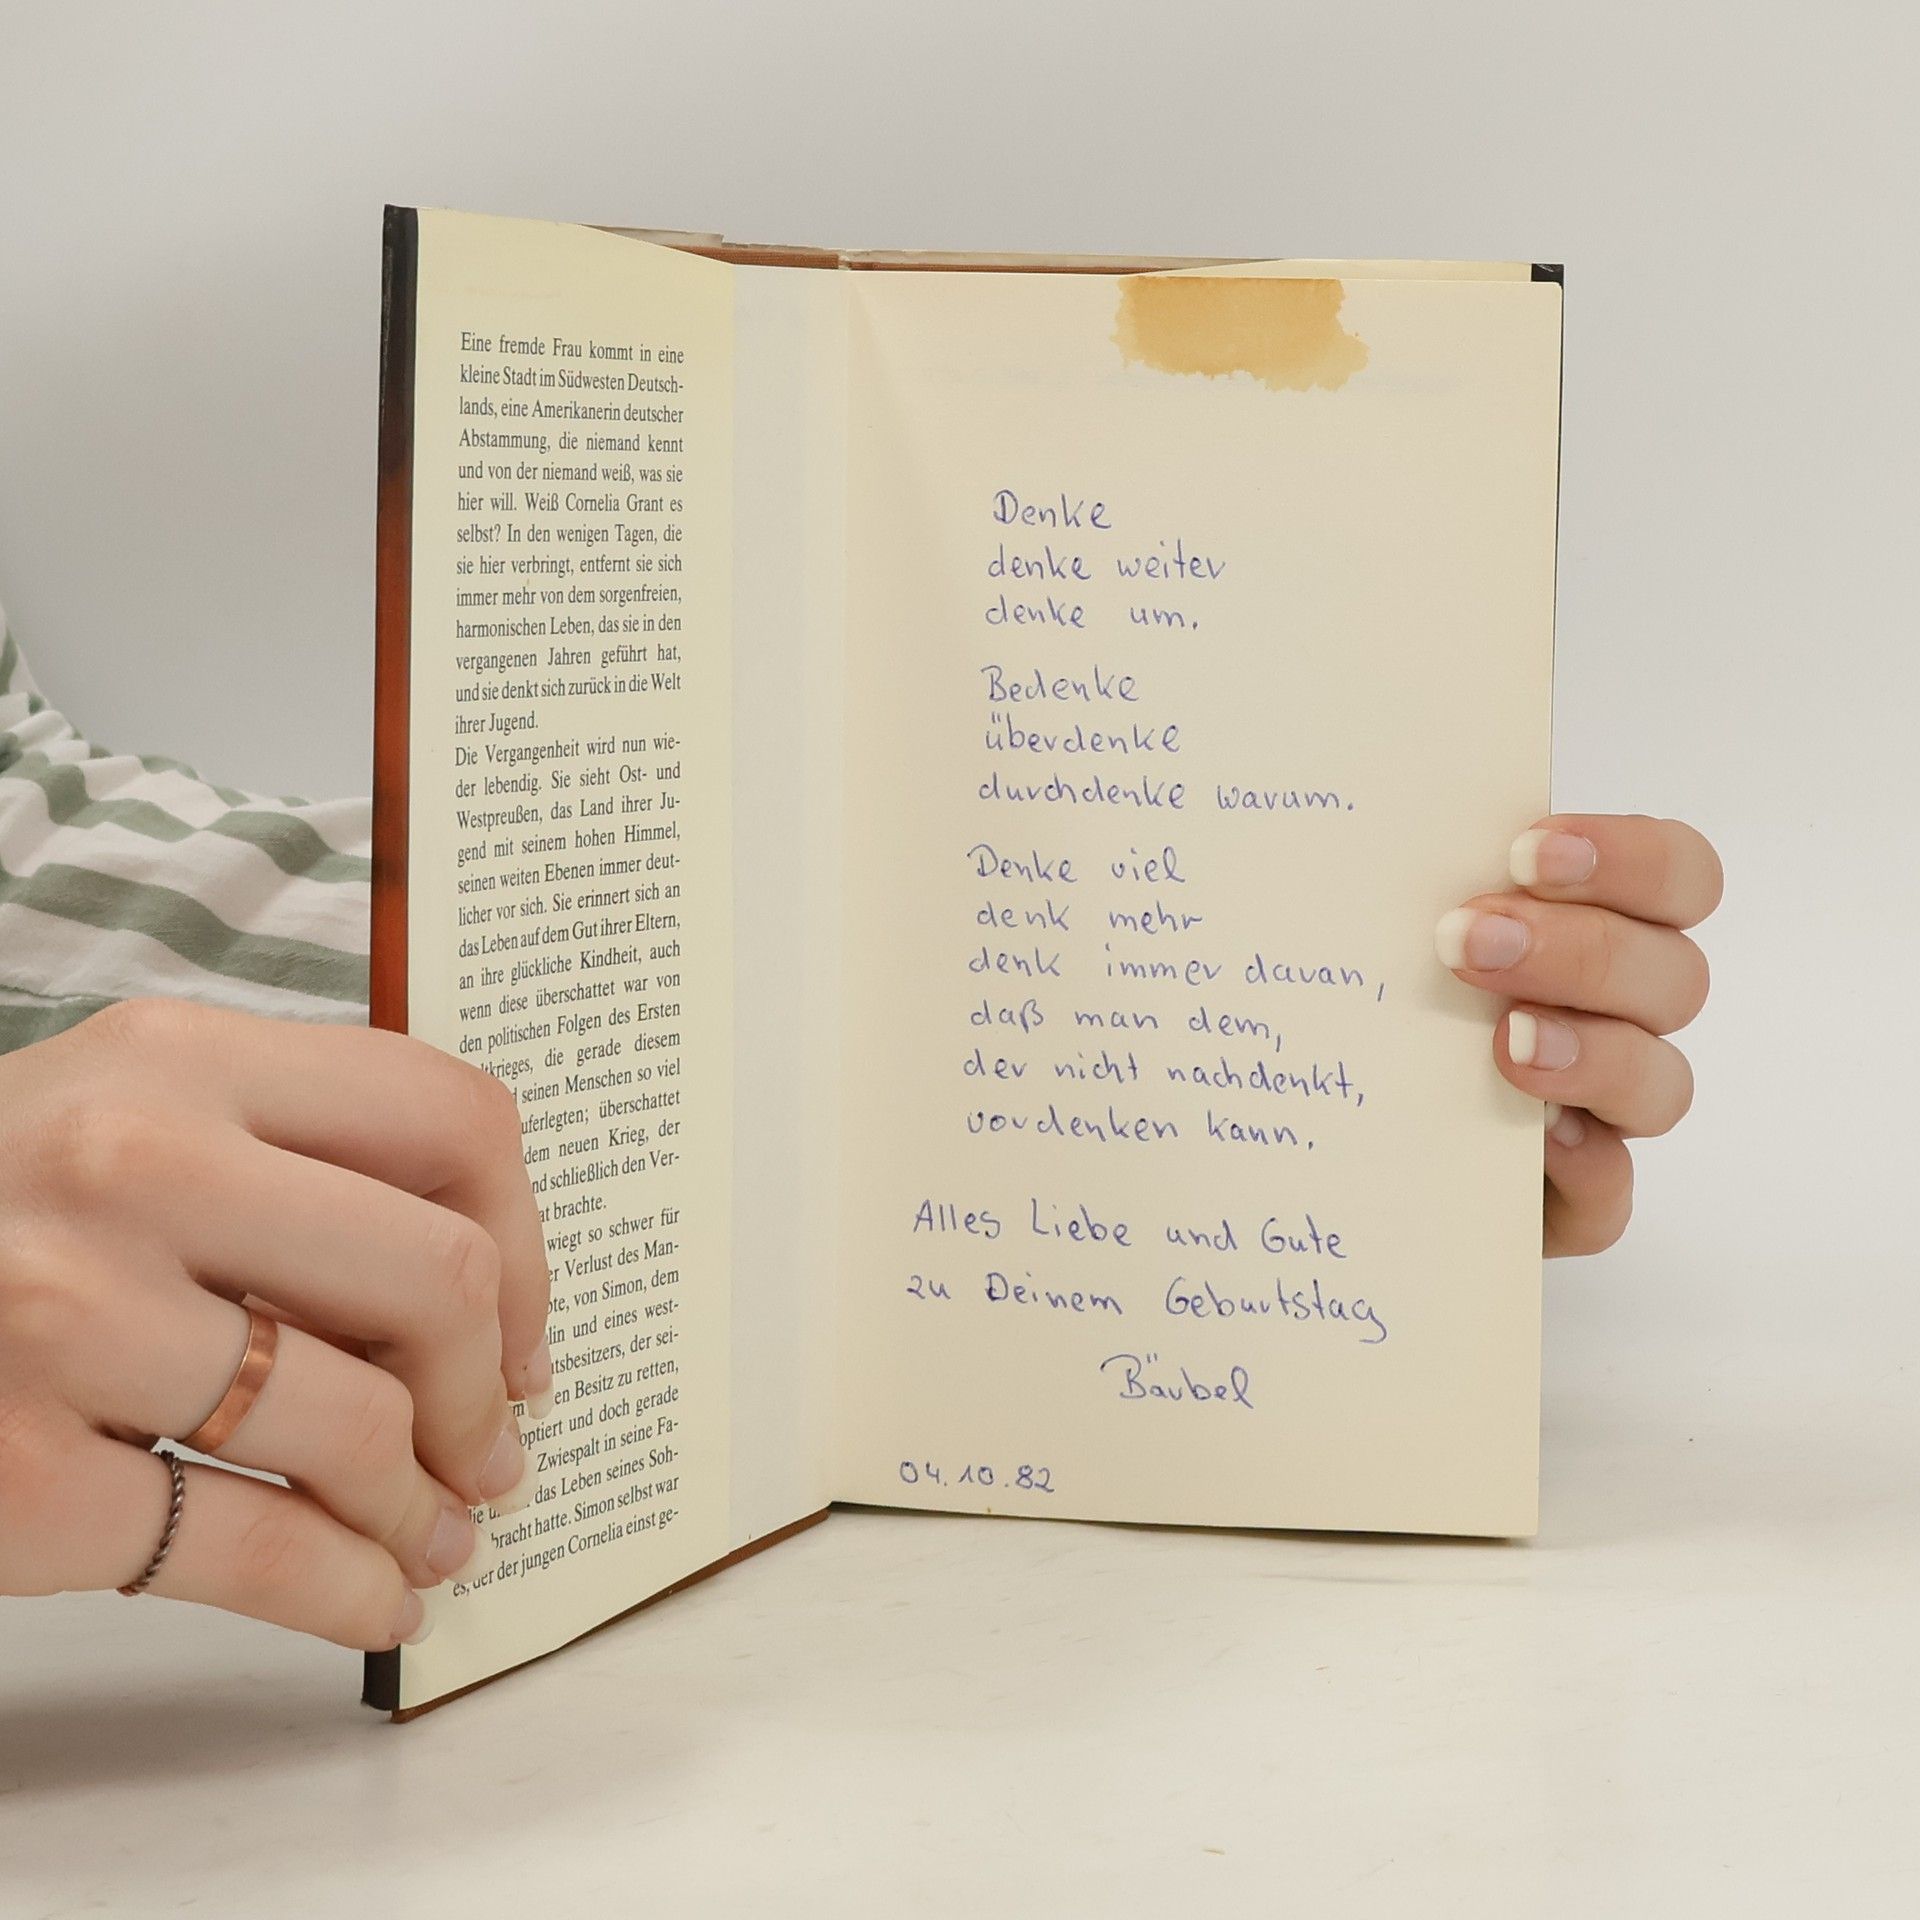 Eine fremde Frau kommt in eine
kleine Stadt im Südwesten Deutsch-
lands, eine Amerikanerin deutscher
Abstammung, die niemand kennt
und von der niemand weiß, was sie
hier will. Weiß Cornelia Grant es
selbst? In den wenigen Tagen, die
sie hier verbringt, entfernt sie sich
immer mehr von dem sorgenfreien,
harmonischen Leben, das sie in den
vergangenen Jahren geführt hat,
und sie denkt sich zurück in die Welt
ihrer Jugend.
Die Vergangenheit wird nun wie-
der lebendig. Sie sieht Ost- und
Westpreußen, das Land ihrer Ju-
gend mit seinem hohen Himmel,
seinen weiten Ebenen immer deut-
licher vor sich. Sie erinnert sich an
das Leben auf dem Gut ihrer Eltern,
an ihre glückliche Kindheit, auch
wenn diese überschattet war von
den politischen Folgen des Ersten
krieges, die gerade diesem
seinen Menschen so viel
uferlegten; überschattet
dem neuen Krieg, der
nd schließlich den Ver-
at brachte.
wiegt so schwer für
er Verlust des Man-
bte, von Simon, dem
lin und eines west-
tsbesitzers, der sei-
en Besitz zu retten,
optiert und doch gerade
Zwiespalt in seine Fa-
das Leben seines Soh-
bracht hatte. Simon selbst war
es, der der jungen Cornelia einst ge-
Denke
denke weiter
denke um.
Bedenke
überdenke
durchdenke warum.
Denke viel
denk mehr
denk immer davan,
daß man dem,
der nicht nachdenkt,
vordenken kann.
Alles Liebe und Gute
zu Deinem Geburtstag
Bärbel
04.10.82